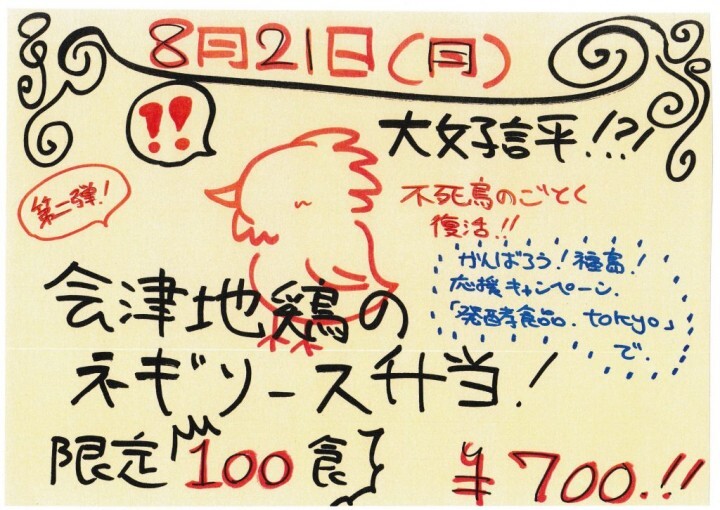 8月21日(月)
!!
大好評!?!
第二弾!
不死鳥のごとく
復活!!
がんばろう!福島!
応援キャンペーン.
「発酵食品.tokyo」
で.
会津地鶏の
ネギソース弁当!
限定100食
¥700.!!